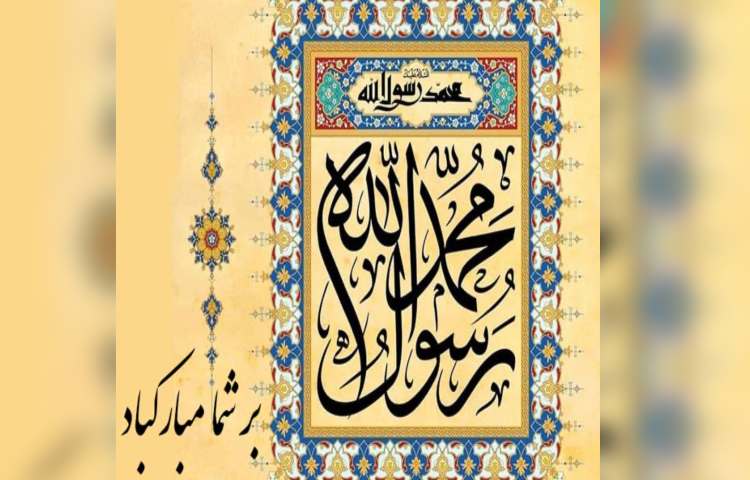 محمد رسول الله
محمد رسول الله
بر شما مبارکباد